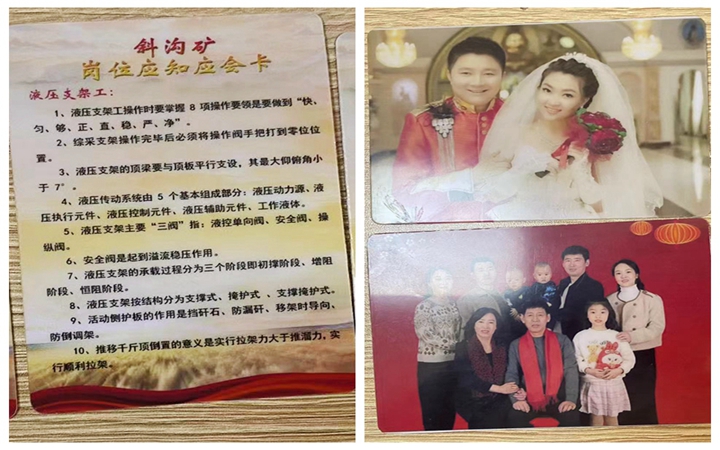 斜沟矿
岗位应知应会卡
液压支架工：
1、液压支架工操作时要掌握 8 项操作要领是要做到“快、
匀、够、正、直、稳、严、净”。
2、综采支架操作完毕后必须将操作阀手把打到零位位
置。
3、液压支架的顶梁要与顶板平行支设，其最大仰俯角小
于 7°。
4、液压传动系统由 5 个基本组成部分：液压动力源、液
压执行元件、液压控制元件、液压辅助元件、工作液体。
5、液压支架主要“三阀”指：液控单向阀、安全阀、操
纵阀。
6、安全阀是起到溢流稳压作用。
7、液压支架的承载过程分为三个阶段即初撑阶段、增阻
阶段、恒阻阶段。
8、液压支架按结构分为支撑式、掩护式 、支撑掩护式。
9、活动侧护板的作用是挡矸石、防漏矸、移架时导向、
防倒调架。
10、推移千斤顶倒置的意义是实行拉架力大于推溜力，实
行顺利拉架。